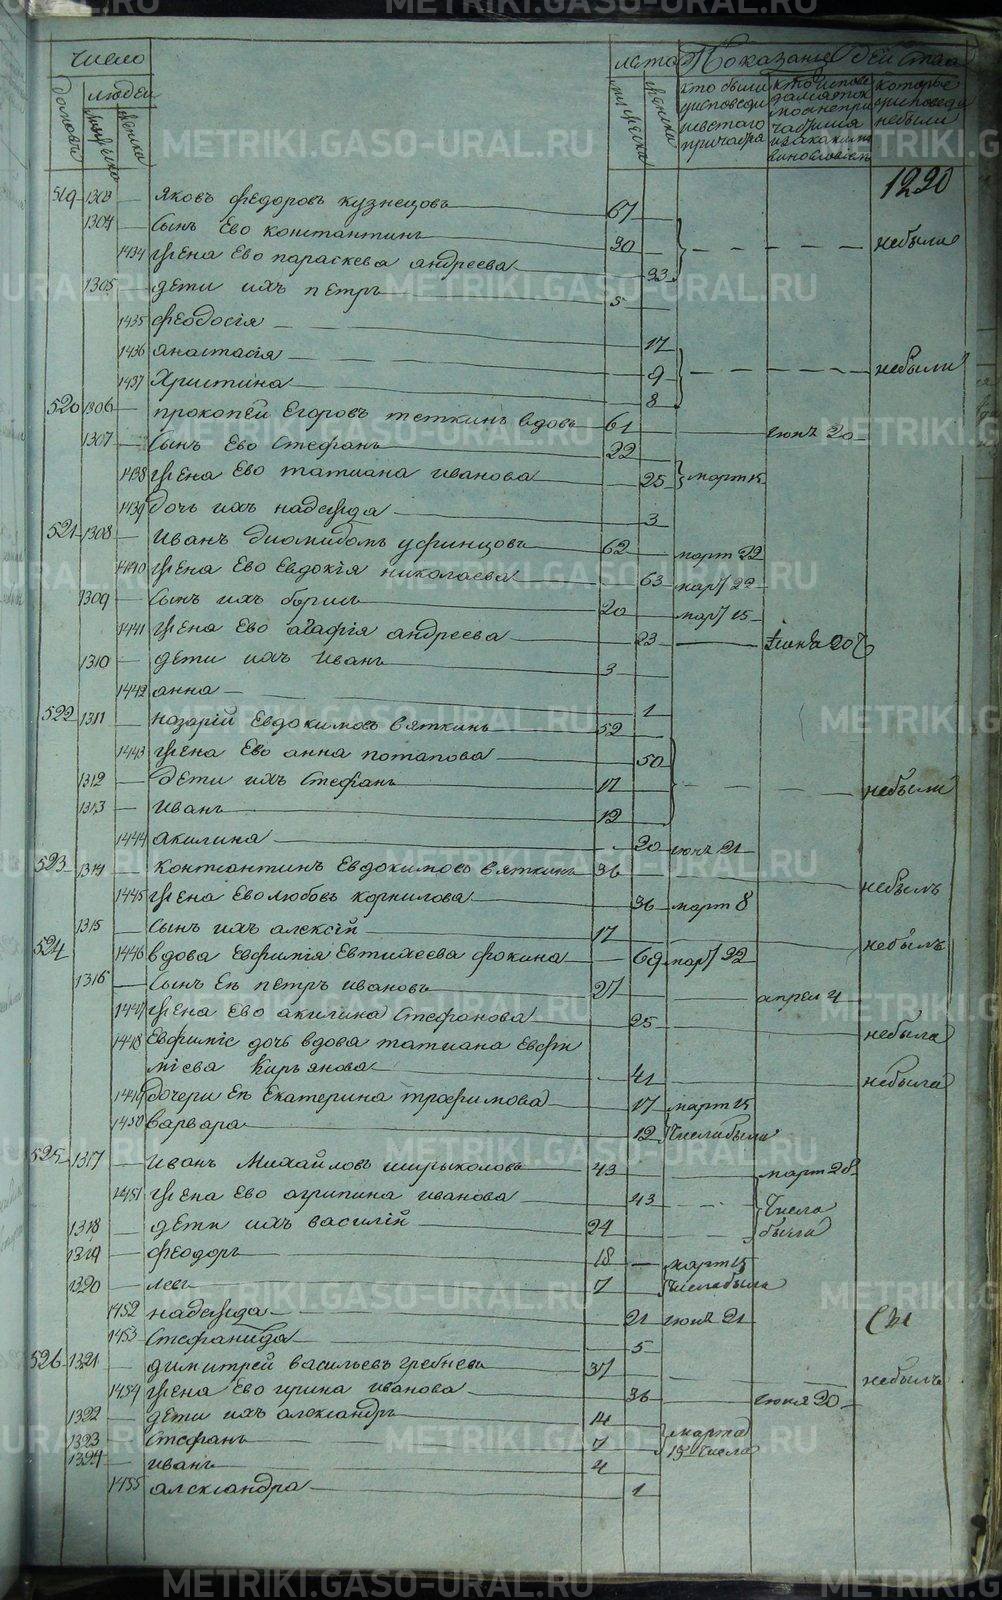 число лета Показание действа
домовъ людей мужеска женска мужеска женска кто были у исповеди и святаго причастия которые у исповеди не были
1220
519 1303 Яковъ Федоровъ Кузнецовъ 67
1304 Сынъ Ево Константинъ 30 небыли
1434 жена Ево параскева андреева 33
1305 дети ихъ петръ 5
1435 феодосія 17
1436 анастасія 9 небыли
1437 Христина 8
520 1306 прокопей Егоровъ теткинъ вдовъ 61 июнь 20
1307 Сынъ Ево Стефанъ 22
1438 жена Ево татиана иванова 25 март 15
1439 дочь ихъ надежда 3
521 1308 Иванъ Диомидовъ уфинцовъ 62 март 22
1440 жена Ево Евдокія николаева 63 март 22
1309 Сынъ ихъ борисъ 20 март 15
1441 жена Ево агафія андреева 23
1310 дети ихъ Иванъ 3
1442 анна 1
522 1311 назарій Евдокимовъ вяткинъ 52
1443 жена Ево анна потапова 50
1312 дети ихъ Стефанъ 17 небыли
1313 Иванъ 12
1444 акилина 20 июнь 21
523 1314 Константинъ Евдокимовъ вяткинъ 36 небылъ
1445 жена Ево любовь корнилова 36 март 8
1315 Сынъ ихъ алексій 17 небылъ
524 1446 вдова Евфимія Евтихеева фокина 69 март 22
1316 Сынъ Ея петръ ивановъ 27 апреля 4
1447 жена Ево акилина Стефанова 25 небыла
1448 Евфиміе дочь вдова татиана Евфи
міева Кирьянова 41 небыла
1449 дочери Ея Екатерина трофимова 17 март 15
1450 варвара 12 Числа была
525 1317 Иванъ Михайловъ ширыкаловъ 43 март 28
1451 жена Ево агрипина иванова 43 Числа
1318 дети ихъ василій 24 были
1319 феодоръ 18 март 15
1320 левъ 7 Числа были
1452 надежда 21 июня 21
1453 Стефанида 5
526 1321 димитрей васильевъ гребневъ 37 небылъ
1454 жена Ево ирина иванова 36 июня 20
1322 дети ихъ александръ 14 марта
1323 Стефанъ 7 15 числа
1324 иванъ 4
1455 александра 1
METRIKI.GASO-URAL.RU